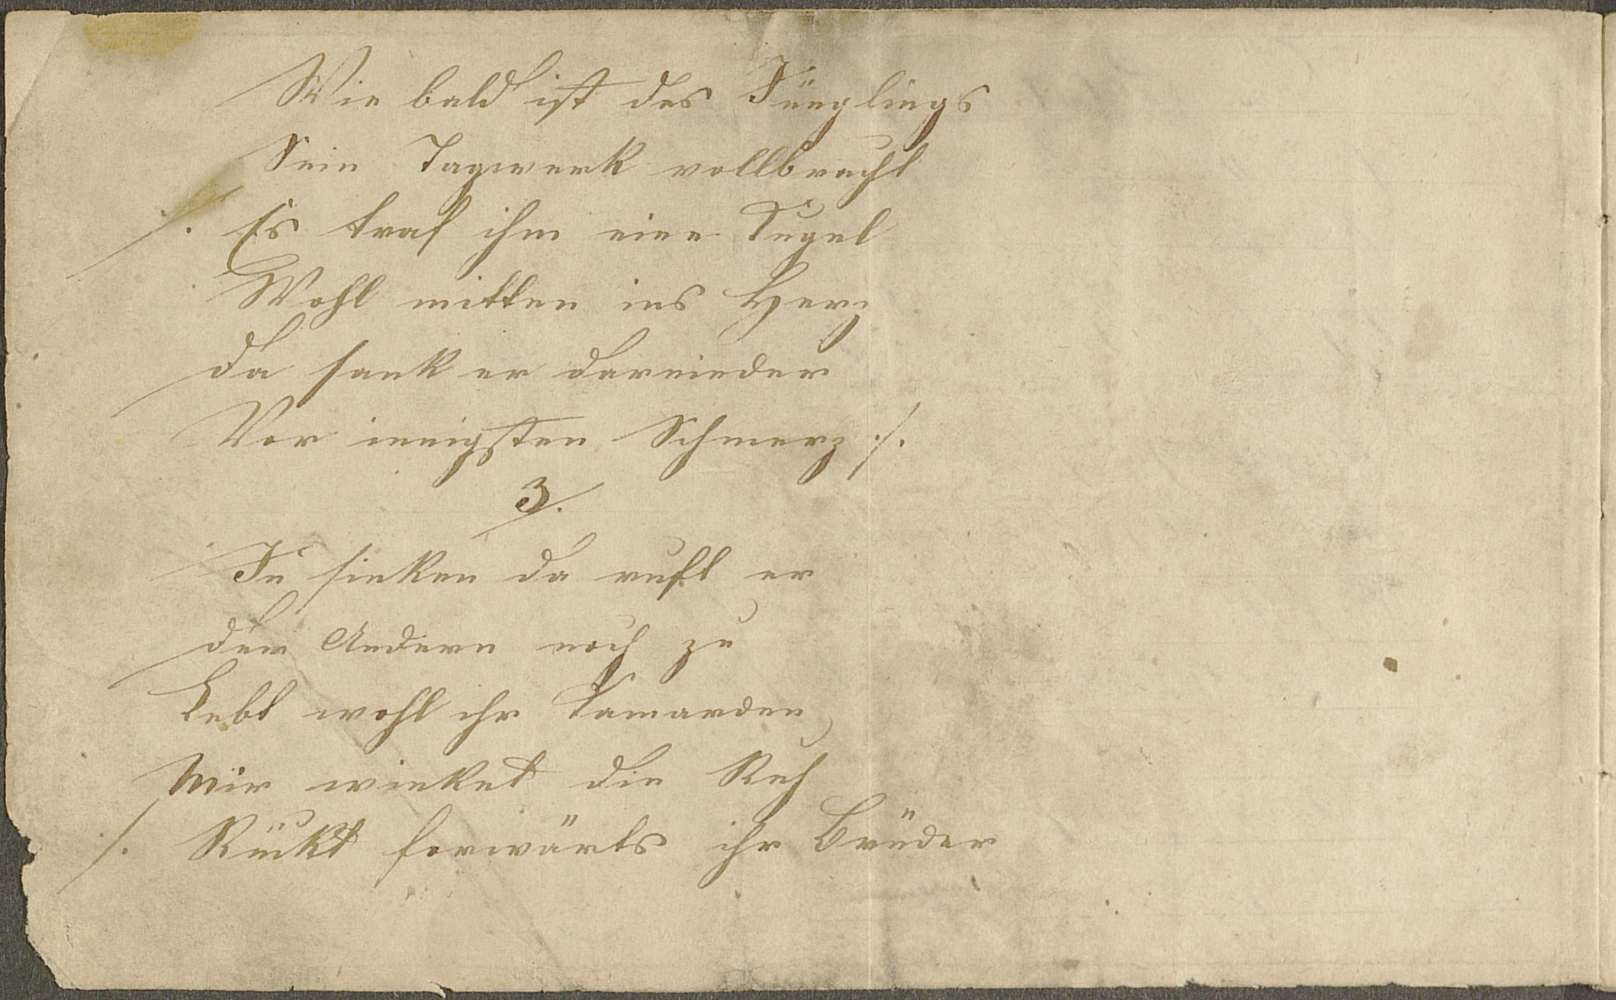 Wie bald ist des Jünglings
Sein Tagwerk vollbracht
./. Es traf ihm eine Kugel
Wohl mitten ins Herz
Da sank er darnieder
Vor innigsten Schmerz ./.
3.
In sinken da ruft er
Den Andern noch zu
Lebt wohl ihr Kamarden
Mir winket die Ruh
./. Rückt forwärts ihr Brüder